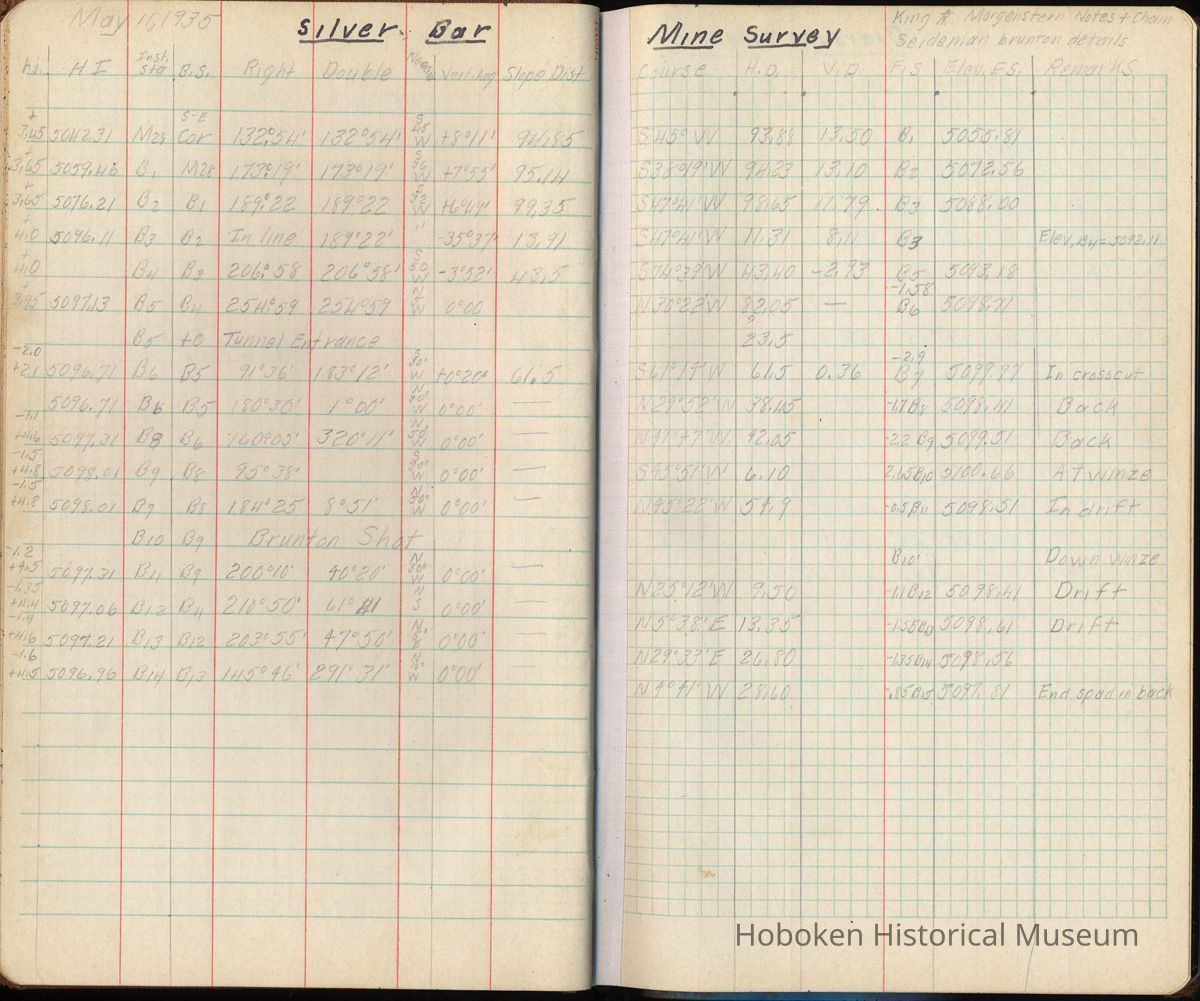 May 11, 1935
Silver Bar
hi HI Inst. Sta B.S. Right Double Needle Vert. Ang Slope Dist
S-E
+ 3.45 5042.31 M29 Cor 132°54' 132°54' S 45 W +8°11' 94.85
+ 3.65 5059.46 B1 M28 173°19' 173°19' S W +7°55' 95.14
+ 3.65 5076.21 B2 B1 189°22 189°22 S W +6°49' 99.35
+ 4.0 5096.11 B3 B2 In line 189°22' " -35°37' 13.91
+ 4.0 B4 B3 206°58 206°58' S W -3°52' 43.5
+ 3.95 5097.13 B5 B4 254°59 254°59 N W 0°00
B5 +0 Tunnel Entrance
-2.0
+2.1 5096.71 B6 B5 91°36' 183°12' S W +0°20' 61.5
5096.71 B6 B5 180°30' 1°00' N W 0°00' —
-1.1
+4.6 5097.31 B8 B6 160°05' 320°11' N W 0°00' —
-1.5
+4.8 5098.01 B9 B8 95°38' S W 0°00' —
-1.5
+4.8 5098.01 B9 B8 184°25 8°51' N W 0°00' —
B10 B9 Brunton Shot
-1.2
+4.5 5097.31 B11 B9 200°10' 40°20' N W 0°00' —
-1.35
+4.4 5097.06 B12 B11 210°50' 61° 41 N S 0°00' —
-1.4
+4.6 5097.21 B13 B12 203°55' 47°50' N E 0°00' —
-1.6
+4.5 5096.96 B14 B13 145°46' 291°31' N W 0°00' —
King Morgenstern Notes + Chain
Mine Survey
Seideman brunton details
Course H.D. V.D. F.S Elev. F.S. Remarks
S45° W 93.88 13.50 B1 5055.81
S38°19'W 94.23 13.10 B2 5072.56
S47°41'W 98.65 11.79 B3 5088.00
S47°41'W 11.31 8.11 B3 Elev. B4=5092.11
S74°39'W 43.40 -2.93 B5 5093.18
-1.58
N30°22'W 82.05 — B6 5098.71
23.5
-2.9
S61°19'W 61.5 0.36 B7 5099.97 In crosscut
N29°52'W 38.45 -1.7 B8 5098.41 Back
N49°47'W 42.05 -2.2 B9 5099.51 Back
S45°51'W 6.10 2.65 B10 5100.66 At winze
N45°22'W 54.9 -0.5 B11 5098.51 In drift
B10' Down winze
N25°12'W 9.50 -1.1 B12 5098.41 Drift
N5°38'E 13.35 -1.55 B13 5098.61 Drift
N29°33'E 26.80 -1.35 B14 5098.56
N4°41'W 28.60 -.85 B15 5097.81 End spad in back
Hoboken Historical Museum